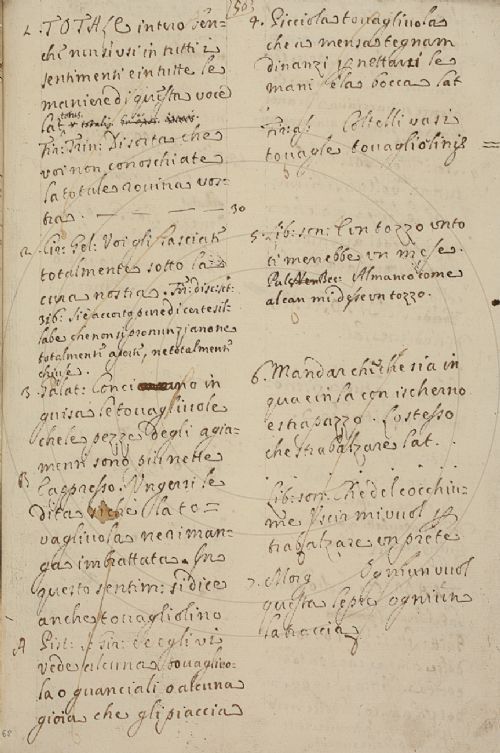 1. TOTALE intero Sen=
che non si usi in tutti i
sentimenti e in tutte le
maniere di questa voce
lat. totus
Fir: Trin: Discita che
voi non conoschiate
la totale rovina vos=
tra. — — — 30
2. Cic: Gel: Voi gli lasciati
totalmente sotto la
cura nostra. Fir: discisit:
316: Si è accorto bene di certe sil=
labe che non si pronunziano ne
totalmenti aperti, ne totalmenti
chiuse.
3. Galat: Conci no in
guisa le tovagliuole
che le pezze degli agia=
menti sono più nette
E appresso. Ungersi le
dita siche la to=
vagliuola ne riman=
ga imbrattata. In
questo sentim: si dice
anche tovagliolino
Fir: Se egli vi
vede alcuna tovaglio=
la o guanciali o alcuna
gioia che gli piaccia
503
4. Picciola tovagliuola
che a mensa tegnam
dinanzi per nettarsi le
mani e la bocca lat
Coltelli vasi
tovagle tovagliolini
5. Lib: son: E un tozzo unto
ti menebbe un mese.
Almanco come
al can mi desse un tozzo.
6. Mandar chi che sia in
qua e in la con ischerno
e strapazzo. Lo stesso
che strabalzare lat.
. . . . . . . .
Lib: son: Che del cocchiu=
me uscir mi vuol
trabalzare un prete
7. Morg Ogniun vuol
questa lepre ogniun
la traccia